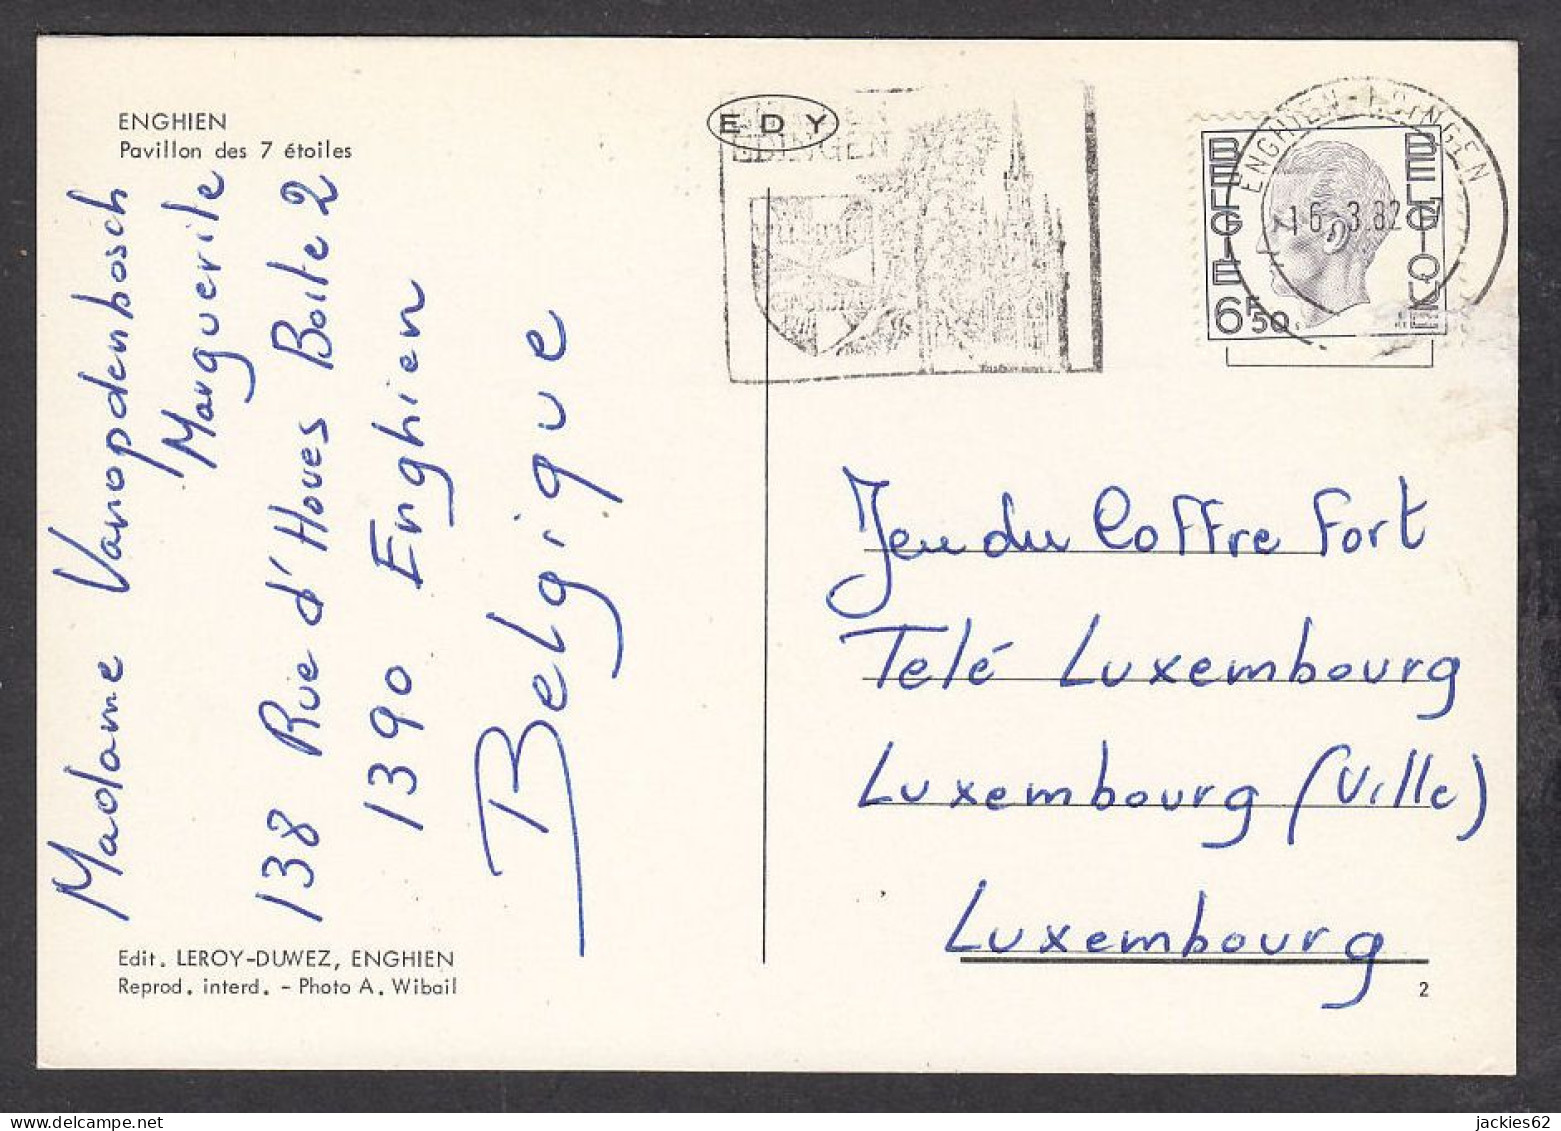 ENGHIEN
Pavillon des 7 étoiles
Madame Vanopdenbosch
Marguerite
138 Rue d'Hoves Boite 2
1390 Enghien
Belgique
Edit. LEROY-DUWEZ, ENGHIEN
Reprod. interd. - Photo A. Wibail
EDY
EDINGEN
ENGHIEN-EDINGEN
16.-3.82
BELGIË
BELGIQUE
6F50
Jeu du Coffre Fort
Telé Luxembourg
Luxembourg (Ville)
Luxembourg
2
jackies62